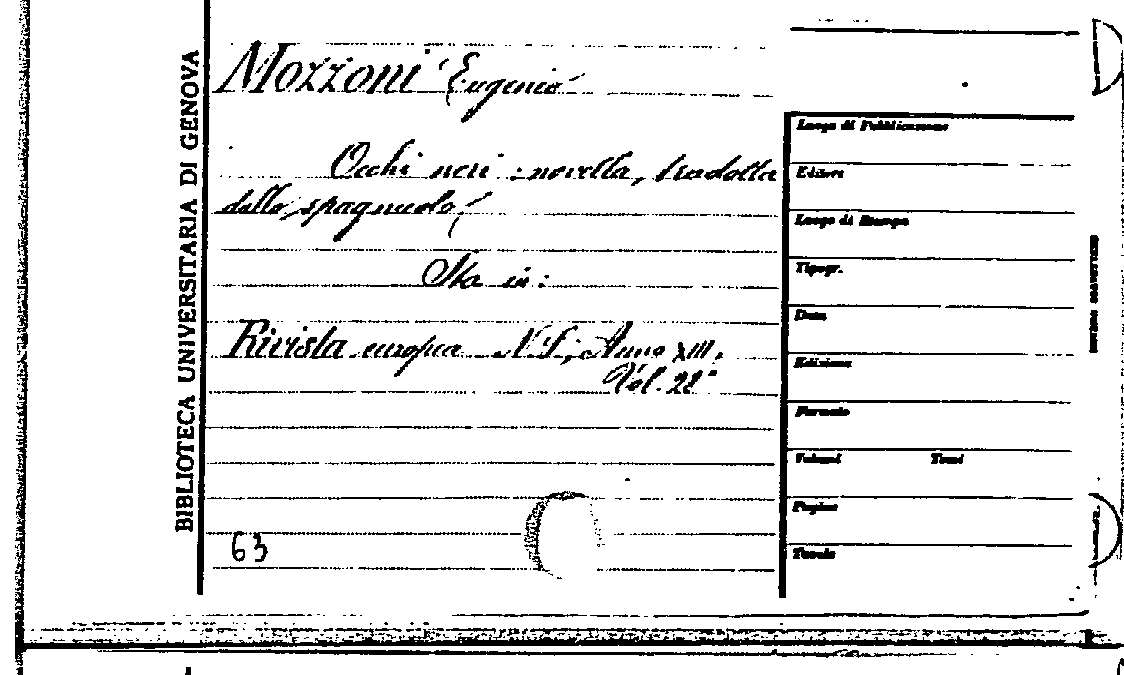 BIBLIOTECA UNIVERSITARIA DI GENOVA
Mozzoni Eugenio
Occhi neri: novella, tradotta
dallo spagnuolo.
Sta in:
Rivista europea N. S., Anno XIII,
Vol. 28°
63
Luogo di Pubblicazione
Editore
Luogo di Stampa
Tipogr.
Data
Edizione
Formato
Volumi Tomi
Pagine
Tavole